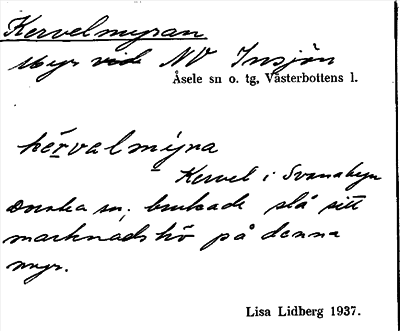 Kervelmyran
Myr vid NV Insjön
Åsele sn o. tg, Västerbottens l.
hérvalmýra
Kervel i Svanabyn
Dorotea sn, brukade slå sitt
marknadshö på denna
myr.
Lisa Lidberg 1937.